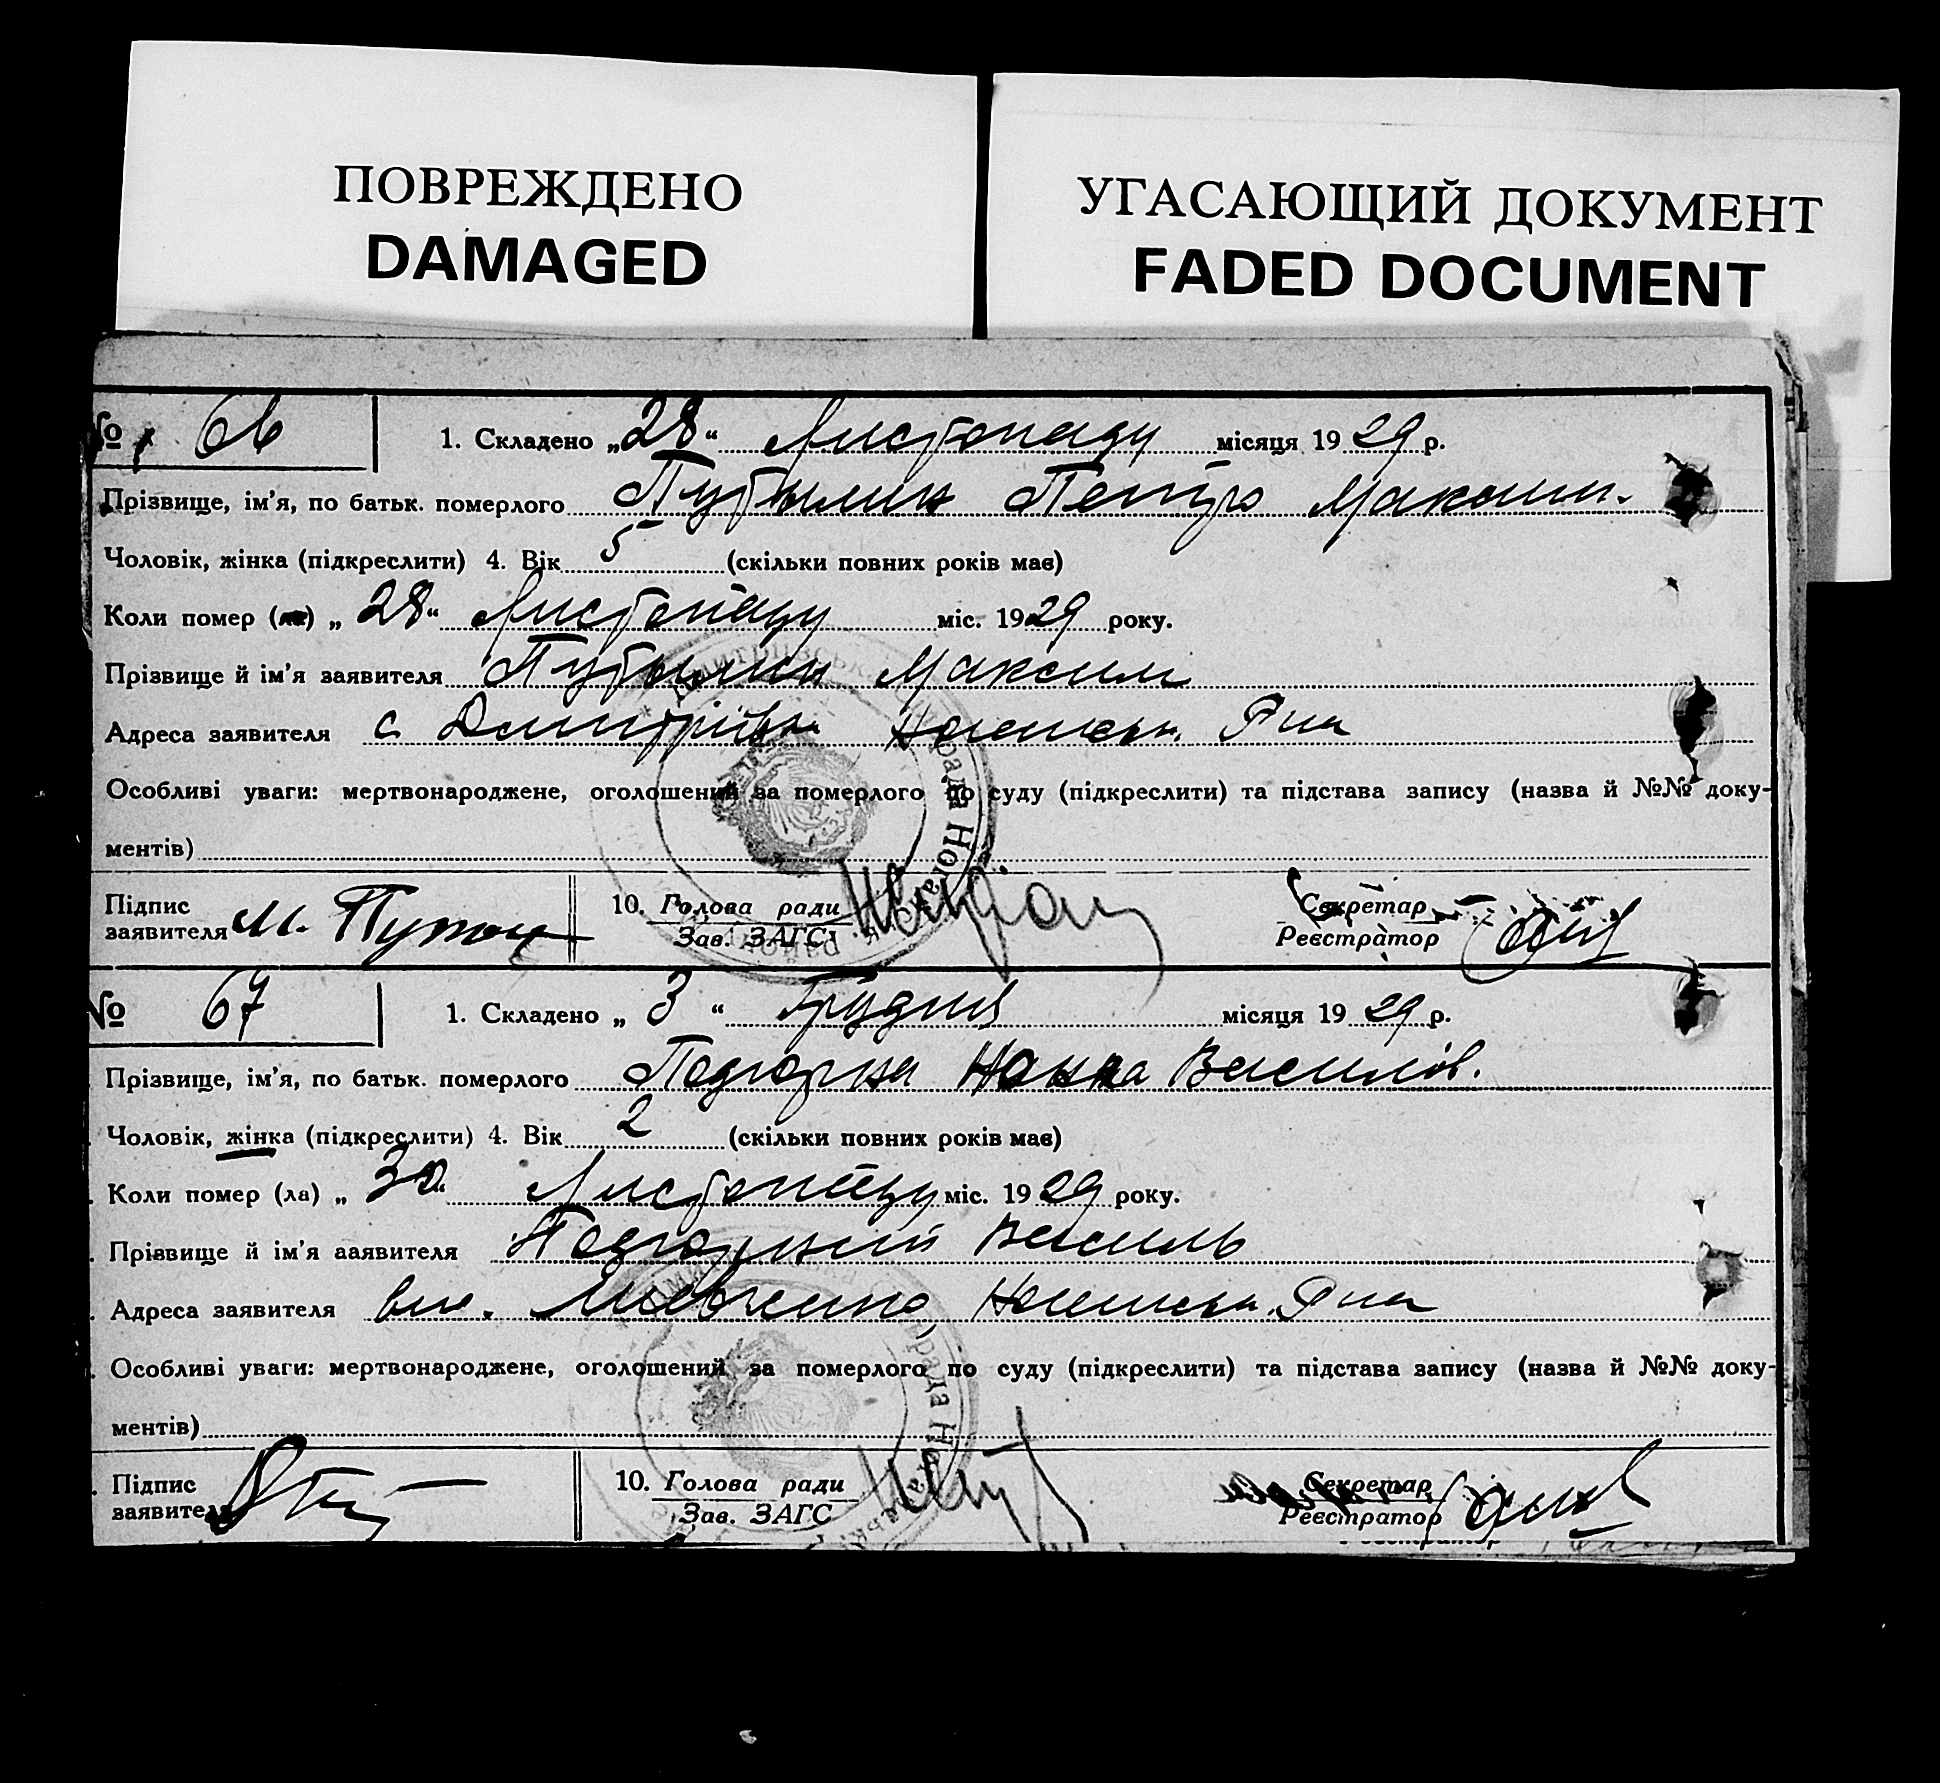 ПОВРЕЖДЕНО
DAMAGED
УГАСАЮЩИЙ ДОКУМЕНТ
FADED DOCUMENT
№ 66
1. Складено „28“ Листопаду місяця 1929 р.
Прізвище, ім’я, по батьк. померлого Петро Максим.
Чоловік, жінка (підкреслити) 4. Вік 5 (скільки повних років має)
Коли помер (ла) „28“ Листопаду міс. 1929 року.
Прізвище й ім’я заявителя Максим
Адреса заявителя с. Дмитрівка Р-на
Особливі уваги: мертвонароджене, оголошений за померлого по суду (підкреслити) та підстава запису (назва й №№ доку-
ментів)
Підпис
заявителя М.
10. Голова ради
Зав. ЗАГС
Секретар
Реєстратор
№ 67
1. Складено „3“ Грудня місяця 1929 р.
Прізвище, ім’я, по батьк. померлого Подгорна Василів.
Чоловік, жінка (підкреслити) 4. Вік 2 (скільки повних років має)
Коли помер (ла) „30“ Листопаду міс. 1929 року.
Прізвище й ім’я заявителя Подгорний Василь
Адреса заявителя Р-на
Особливі уваги: мертвонароджене, оголошений за померлого по суду (підкреслити) та підстава запису (назва й №№ доку-
ментів)
Підпис
заявителя
10. Голова ради
Зав. ЗАГС
Секретар
Реєстратор